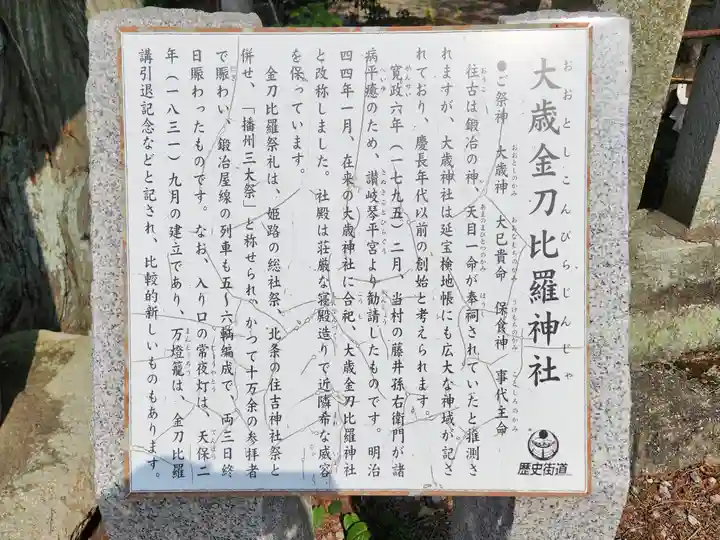 大歳金刀比羅神社
おおとしこんぴらじんじゃ
●ご祭神 大歳神 大巳貴命 保食神 事代主命
おおとしのかみ おおなもちのかみ うけもちのかみ ことしろのかみ
往古は鍛冶の神、天目一命が奉祠されていたと推測さ
れますが、大歳神社は延宝検地帳にも広大な神域が記さ
れており、慶長年代以前の創始と考えられます。
寛政六年(一七九五)二月、当村の藤井孫右衛門が諸
病平癒のため、讃岐琴平宮より勧請したものです。明治
四四年一月、在来の大歳神社に合祀、大歳金刀比羅神社
と改称しました。社殿は荘厳な寝殿造りで近隣希な威容
を保っています。
金刀比羅祭礼は、姫路の総社祭、北条の住吉神社祭と
併せ、「播州三大祭」と称せられ、かつて十万余の参拝者
で賑わい、鍛冶屋線の列車も五〜六輌編成で、両三日終
日賑わったものです。なお、入り口の常夜灯は、天保二
年(一八三一)九月の建立であり、万燈籠は、金刀比羅
講引退記念などと記され、比較的新しいものもあります。
歴史街道